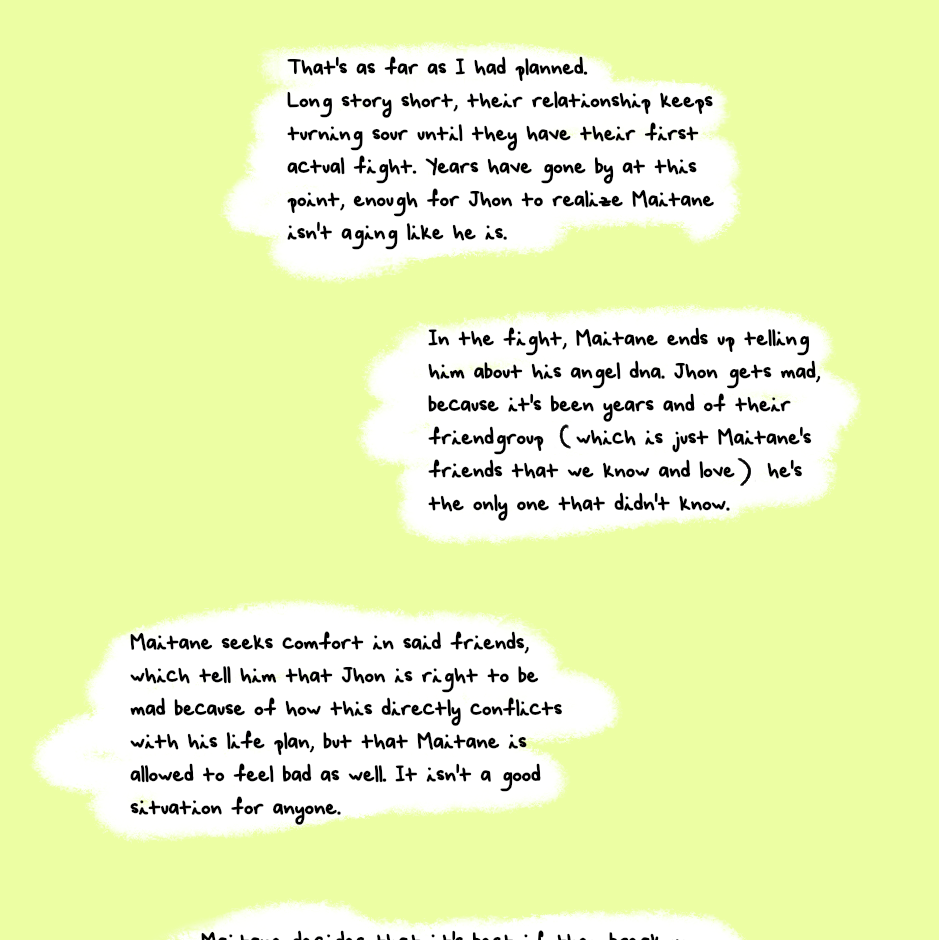 That's as far as I had planned.
Long story short, their relationship keeps
turning sour until they have their first
actual fight. Years have gone by at this
point, enough for Jhon to realize Maitane
isn't aging like he is.
In the fight, Maitane ends up telling
him about his angel dna. Jhon gets mad,
because it's been years and of their
friendgroup (which is just Maitane's
friends that we know and love) he's
the only one that didn't know.
Maitane seeks comfort in said friends,
which tell him that Jhon is right to be
mad because of how this directly conflicts
with his life plan, but that Maitane is
allowed to feel bad as well. It isn't a good
situation for anyone.
Maitane decides that it's best if they break